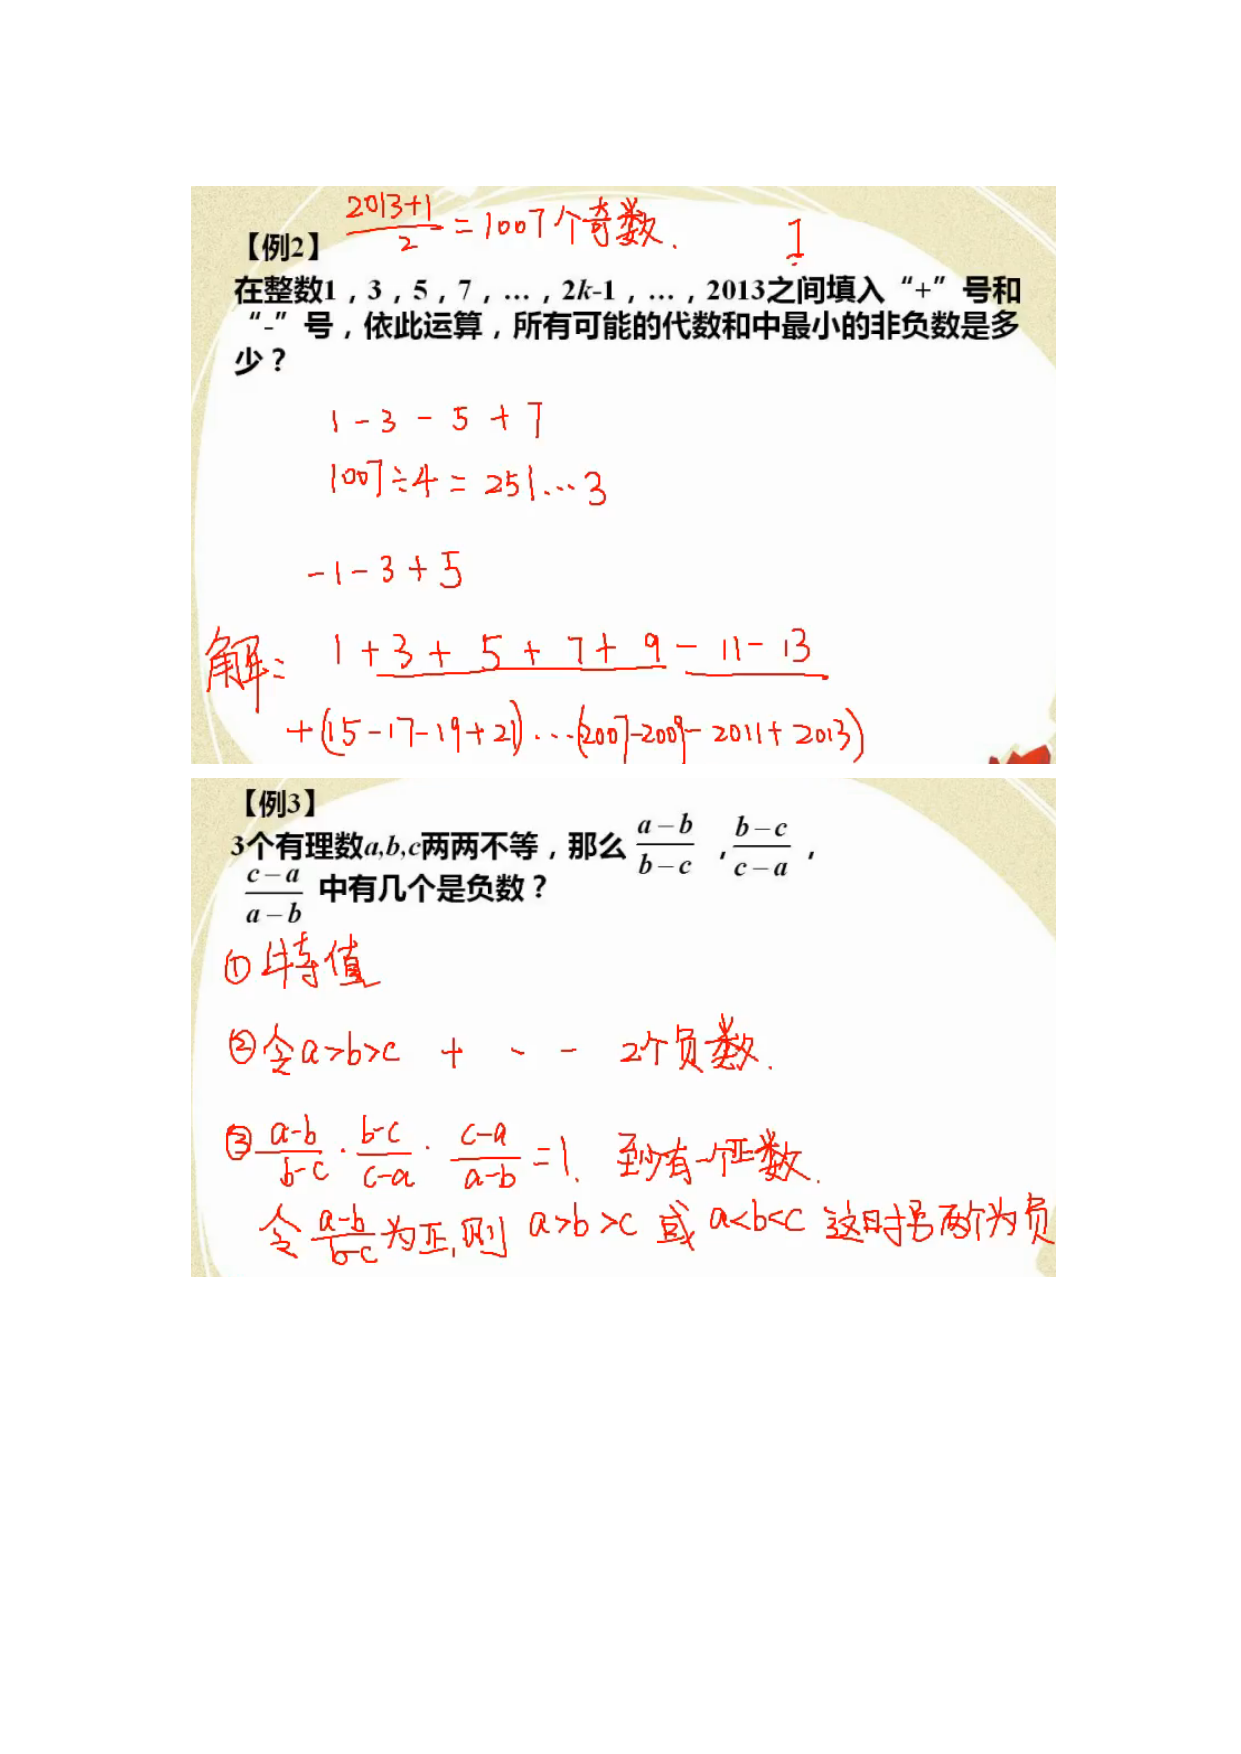 2013+1/2 = 1007个奇数. 1
【例2】
在整数1，3，5，7，…，2k-1，…，2013之间填入“+”号和
“-”号，依此运算，所有可能的代数和中最小的非负数是多
少？
1 - 3 - 5 + 7
1007÷4 = 251…3
-1-3+5
解: 1 + 3 + 5 + 7 + 9 - 11 - 13
+(15-17-19+21)…(2007-2009-2011+2013)
【例3】
3个有理数a,b,c两两不等，那么 a-b/b-c , b-c/c-a ,
c-a/a-b 中有几个是负数？
①特值
②令a>b>c + - - 2个负数.
③ a-b/b-c · b-c/c-a · c-a/a-b = 1. 至少有一个正数.
令 a-b/b-c 为正,则 a>b>c 或 a<b<c 这时另两个为负